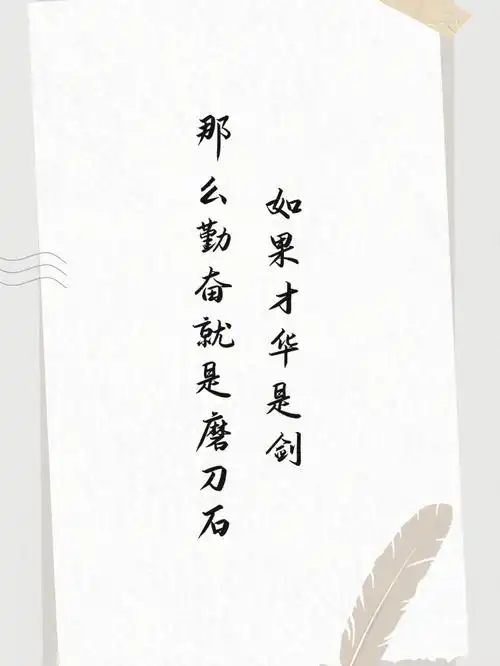 如果才华是剑
那么勤奋就是磨刀石